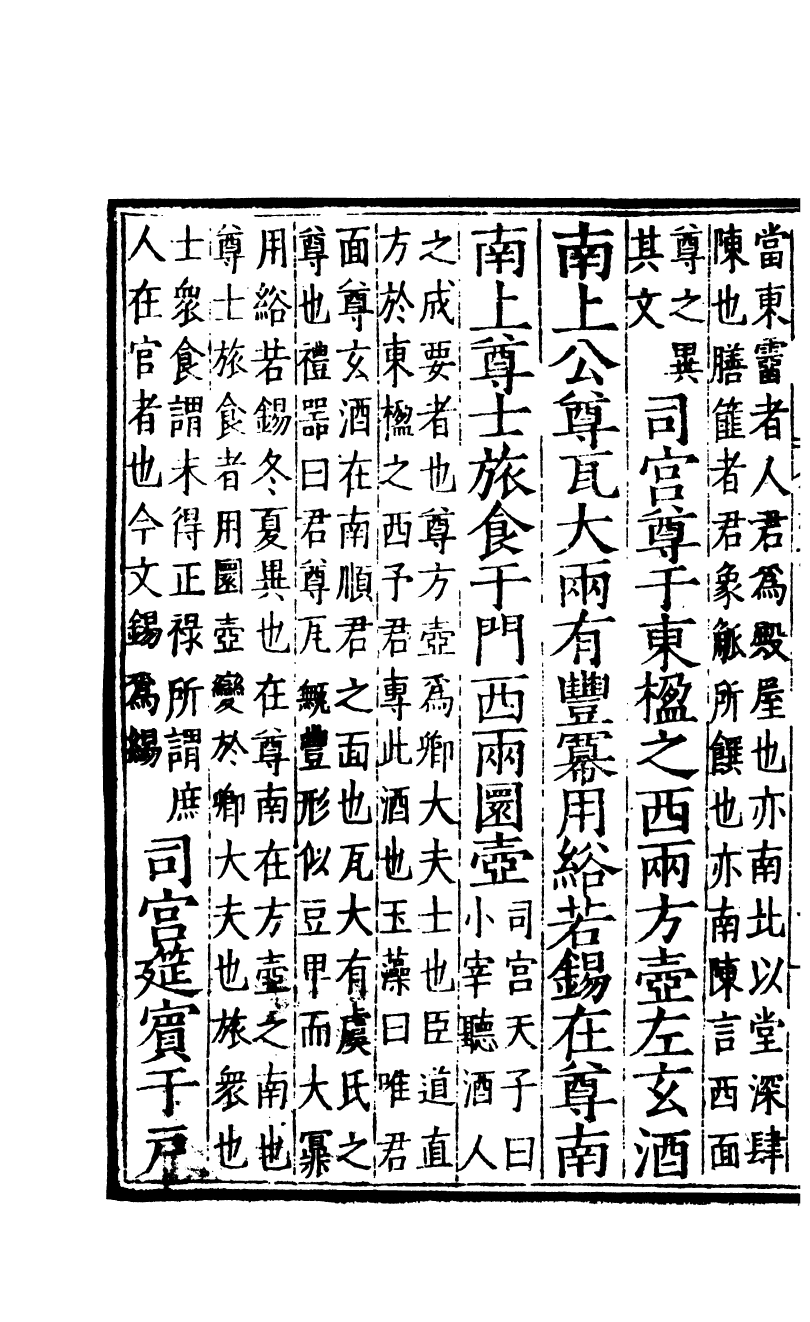 當東霤者人君為殿屋也亦南北以堂深肆
陳也膳篚者君象觚所饌也亦南陳言西面
尊之異
其文
司宫尊于東楹之西兩方壺左玄酒
南上公尊瓦大兩有豐冪用綌若錫在尊南
南上尊士旅食于門西兩圜壺
司宫天子曰
小宰聽酒人
之成要者也尊方壺為卿大夫士也臣道直
方於東楹之西予君專此酒也玉藻曰唯君
面尊玄酒在南順君之面也瓦大有虞氏之
尊也禮器曰君尊瓦甒豐形似豆甲而大冪
用綌若錫冬夏異也在尊南在方壺之南也
尊士旅食者用圜壺變於卿大夫也旅衆也
士衆食謂未得正祿所謂庶
人在官者也今文錫為緆
司宫筵賓于戸